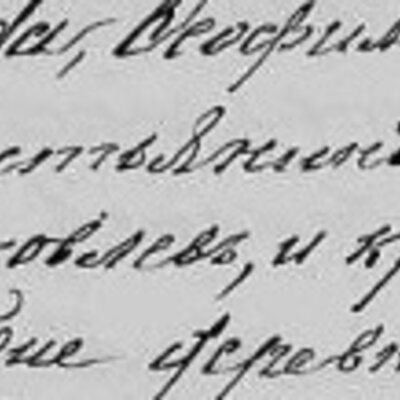 да, Ѳеофил
стьянинъ
ковлевъ, и к
вне деревн